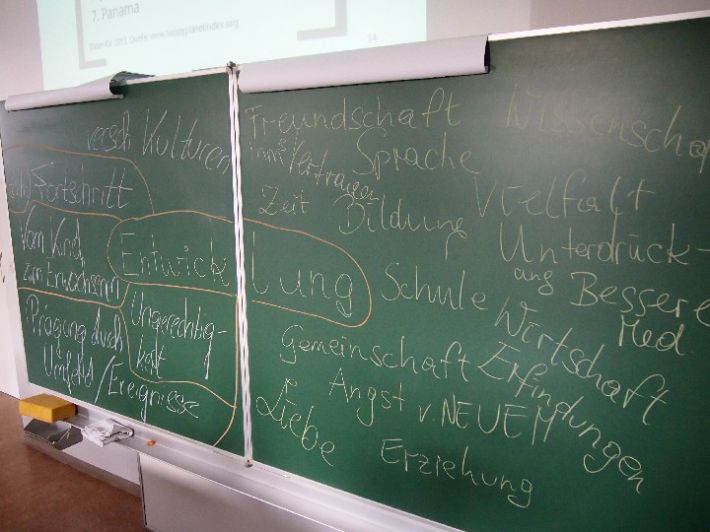 7. Panama
Daten für 2013, Quelle: www.happyplanetindex.org
14
versch Kulturen
Fortschritt
Vom Kind
zum Erwachsenen
Entwicklung
Prägung durch
Umfeld/Ereignisse
Ungerechtig-
keit
Freundschaft
Wissenscha
Vertrauen
Sprache
Zeit
Bildung
Vielfalt
Unterdrück-
ung
Schule
Bessere
Med.
Wirtschaft
Gemeinschaft
Erfindungen
Angst v. NEUEM
Liebe
Erziehung